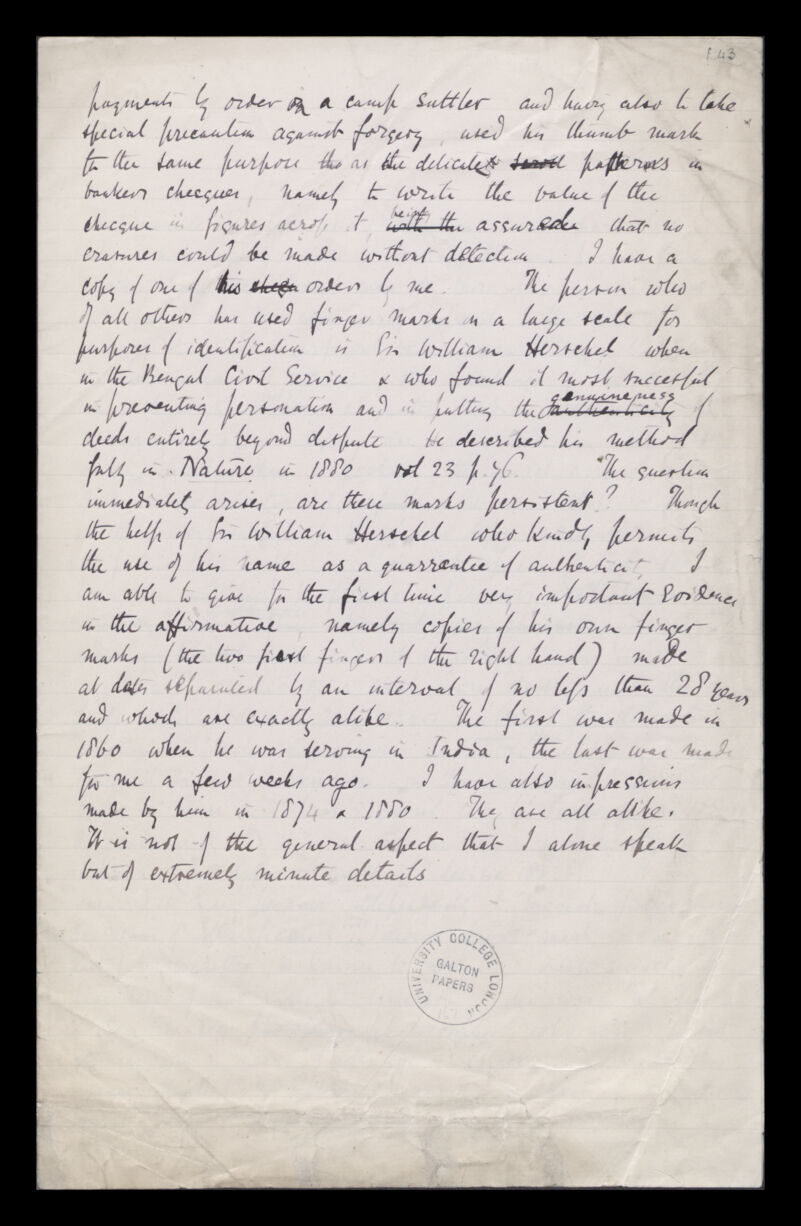 f.43
payments by order on a camp suttler and having also to take
special precaution against forgery, used his thumb mark
for the same purpose tho as the delicate scroll patterns in
bankers checques, namely to write the value of the
checque in figures across it, being
with the assured that no
erasures could be made without detection. I have a
copy of one of his orders by me. The person who
of all others has used finger marks on a large scale for
purposes of identification is Sir William Herschel when
in the Bengal Civil Service & who found it most successful
genuineness
in preventing personation and in putting the authenticity of
deeds entirely beyond dispute He described his method
fully in Nature in 1880 vol 23 p. 76. The question
immediately arises, are these marks persistent? Though
the help of Sir William Herschel who kindly permits
the use of his name as a guarrentee of authenticity, I
am able to give for the first time very important Evidence
in the affirmative, namely copies of his own finger
marks (the two first fingers of the right hand) made
at dates separated by an interval of no less than 28 years
and which are exactly alike. The first was made in
1860 when he was serving in India, the last was made
for me a few weeks ago. I have also impressions
made by him in 1874 & 1880. They are all alike.
It is not of the general aspect that I alone speak
but of extremely minute details
UNIVERSITY COLLEGE LONDON
GALTON
PAPERS